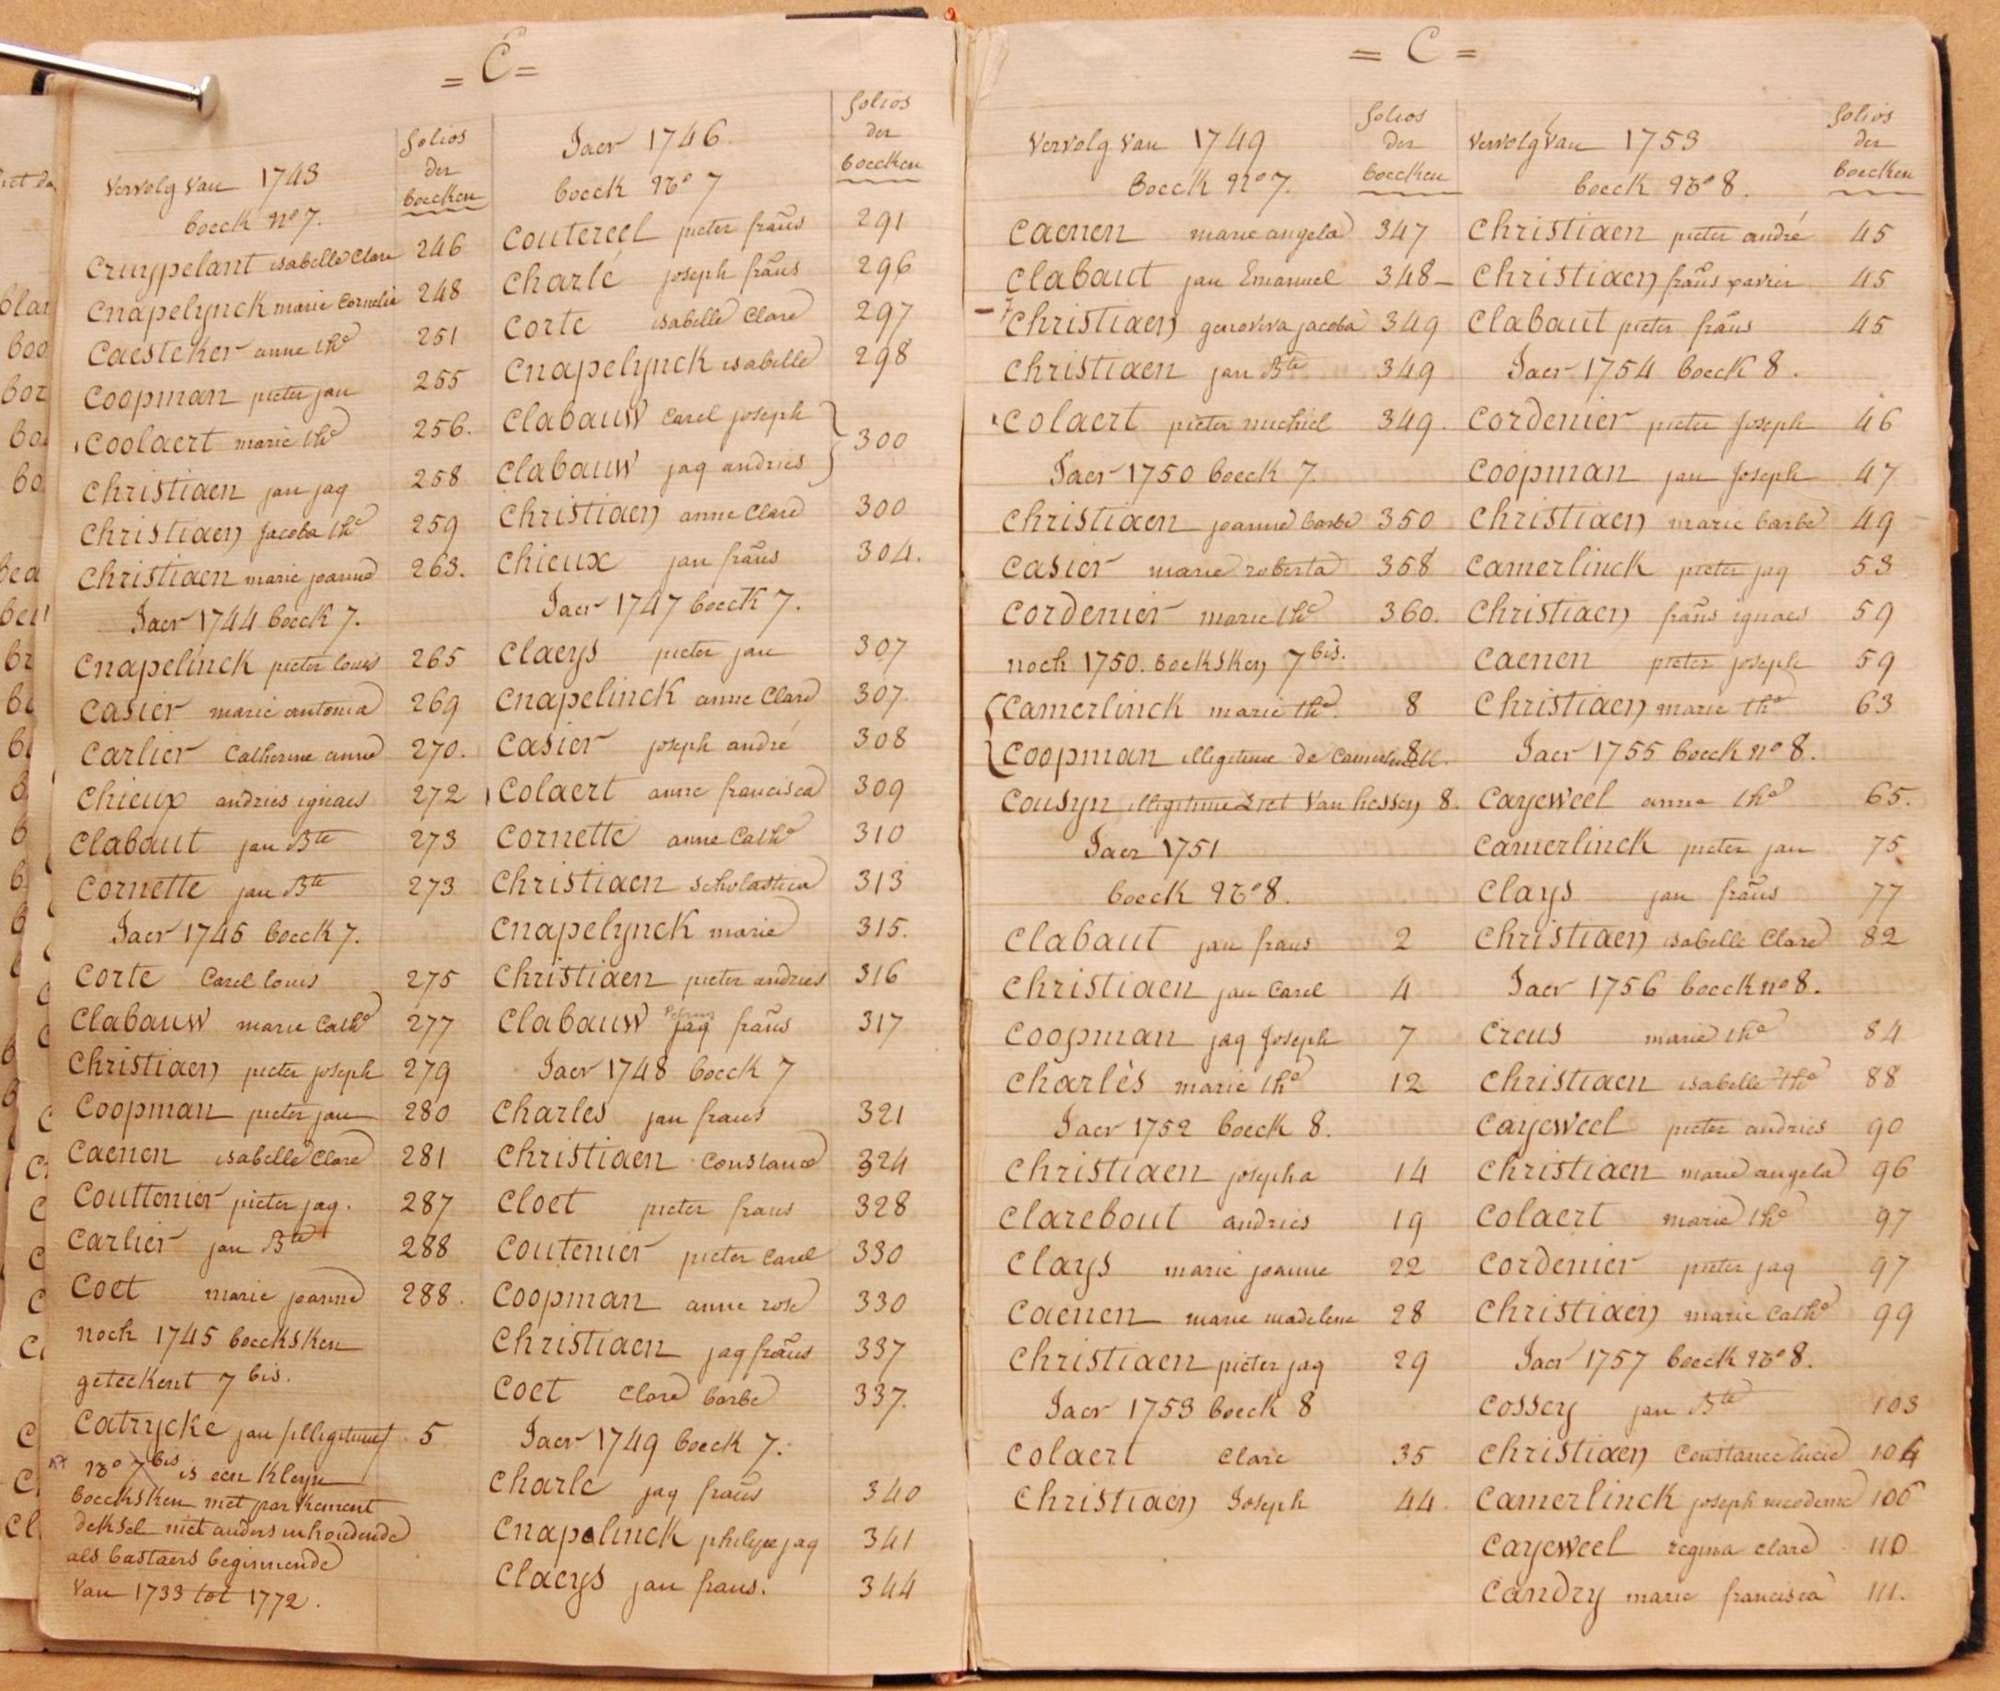 = C =
Vervolg van 1743
boeck no 7.
folios
der
boecken
Cruypelant isabelle Clare 246
Cnapelynck marie Cornelie 248
Caesteker anne the 251
Coopman pieter jan 255
Coolaert marie the 256.
Christiaen jan jaq 258
Christiaen Jacoba the 259
Christiaen marie joanne 263.
Jaer 1744 boeck 7.
Cnapelinck pieter louis 265
Casier marie antonia 269
Carlier Catherine anne 270.
Chieux andries ignaes 272
Clabaut jan Bte 273
Cornette jan Bte 273
Jaer 1745 boeck 7.
Corte Carel louis 275
Clabauw marie Cathe 277
Christiaen pieter joseph 279
Coopman pieter jan 280
Caenen isabelle Clare 281
Couttenier pieter jaq. 287
Carlier jan Bte 288
Coet marie joanne 288.
noch 1745 boecksken
geteekent 7 bis.
Catrycke jan illigitime 5
No 7 bis is een Kleyn
boecksken met parkement
deksel niet anders inhoudende
als bastaers beginnende
van 1733 tot 1772.
Jaer 1746.
boeck No 7
folios
der
boecken
Coutereel pieter frañs 291
Charlé joseph frañs 296
Corte isabelle Clare 297
Cnapelynck isabelle 298
Clabauw Carel joseph
Clabauw jaq andries } 300
Christiaen anne Clare 300
Chieux jan frañs 304.
Jaer 1747 boeck 7.
Claeys pieter jan 307
Cnapelinck anne Clare 307.
Casier joseph andré 308
Colaert anne francisca 309
Cornette anne Cathe 310
Christiaen scholastica 313
Cnapelynck marie 315.
Christiaen pieter andries 316
Clabauw jaq frañs 317
Jaer 1748 boeck 7
Charles jan frans 321
Christiaen Constance 324
Cloet pieter frans 328
Coutenier pieter Carel 330
Coopman anne rose 330
Christiaen jaq frañs 337
Coet Clare barbe 337.
Jaer 1749 boeck 7.
Charle jaq frañs 340
Cnapelinck philype jaq 341
Claeys jan frans. 344
= C =
Vervolg van 1749
boeck No 7.
folios
der
boecken
Caenen marie angela 347
Clabaut jan Emanuel 348
Christiaen genoviva jacoba 349
Christiaen jan Bte 349
Colaert pieter michiel 349.
Jaer 1750 boeck 7.
Christiaen joanne barbe 350
Casier marie roberta 358
Cordenier marie the 360.
noch 1750. boecksken 7 bis.
Camerlinck marie the. 8
Coopman illigitime de Camerlinck. 8
Cousyn illigitime Zict van hessen 8.
Jaer 1751
boeck No 8.
Clabaut jan frans 2
Christiaen jan Carel 4
Coopman jaq Joseph 7
Charlès marie the 12
Jaer 1752 boeck 8.
Christiaen josepha 14
Clarebout andries 19
Clays marie joanne 22
Caenen marie madelene 28
Christiaen pieter jaq 29
Jaer 1753 boeck 8
Colaert Clare 35
Christiaen Joseph 44.
Vervolg van 1753
boeck No 8.
folios
der
boecken
Christiaen pieter andré 45
Christiaen frañs xavier 45
Clabaut pieter frañs 45
Jaer 1754 boeck 8.
Cordenier pieter Joseph 46
Coopman jan Joseph 47
Christiaen marie barbe 49
Camerlinck pieter jaq 53
Christiaen frañs ignaes 59
Caenen pieter joseph 59
Christiaen marie the 63
Jaer 1755 boeck no 8.
Cayeweel anne the 65.
Camerlinck pieter jan 75
Clays jan frañs 77
Christiaen isabelle Clare 82
Jaer 1756 boeck no 8.
Creus marie the 84
Christiaen isabelle the 88
Cayeweel pieter andries 90
Christiaen marie angela 96
Colaert marie the 97
Cordenier pieter jaq 97
Christiaen marie Cathe 99
Jaer 1757 boeck No 8.
Cossey jan Bte 103
Christiaen Constance lucie 104
Camerlinck joseph nicodeme 106
Cayeweel regina Clare 110
Candry marie francisca 111.